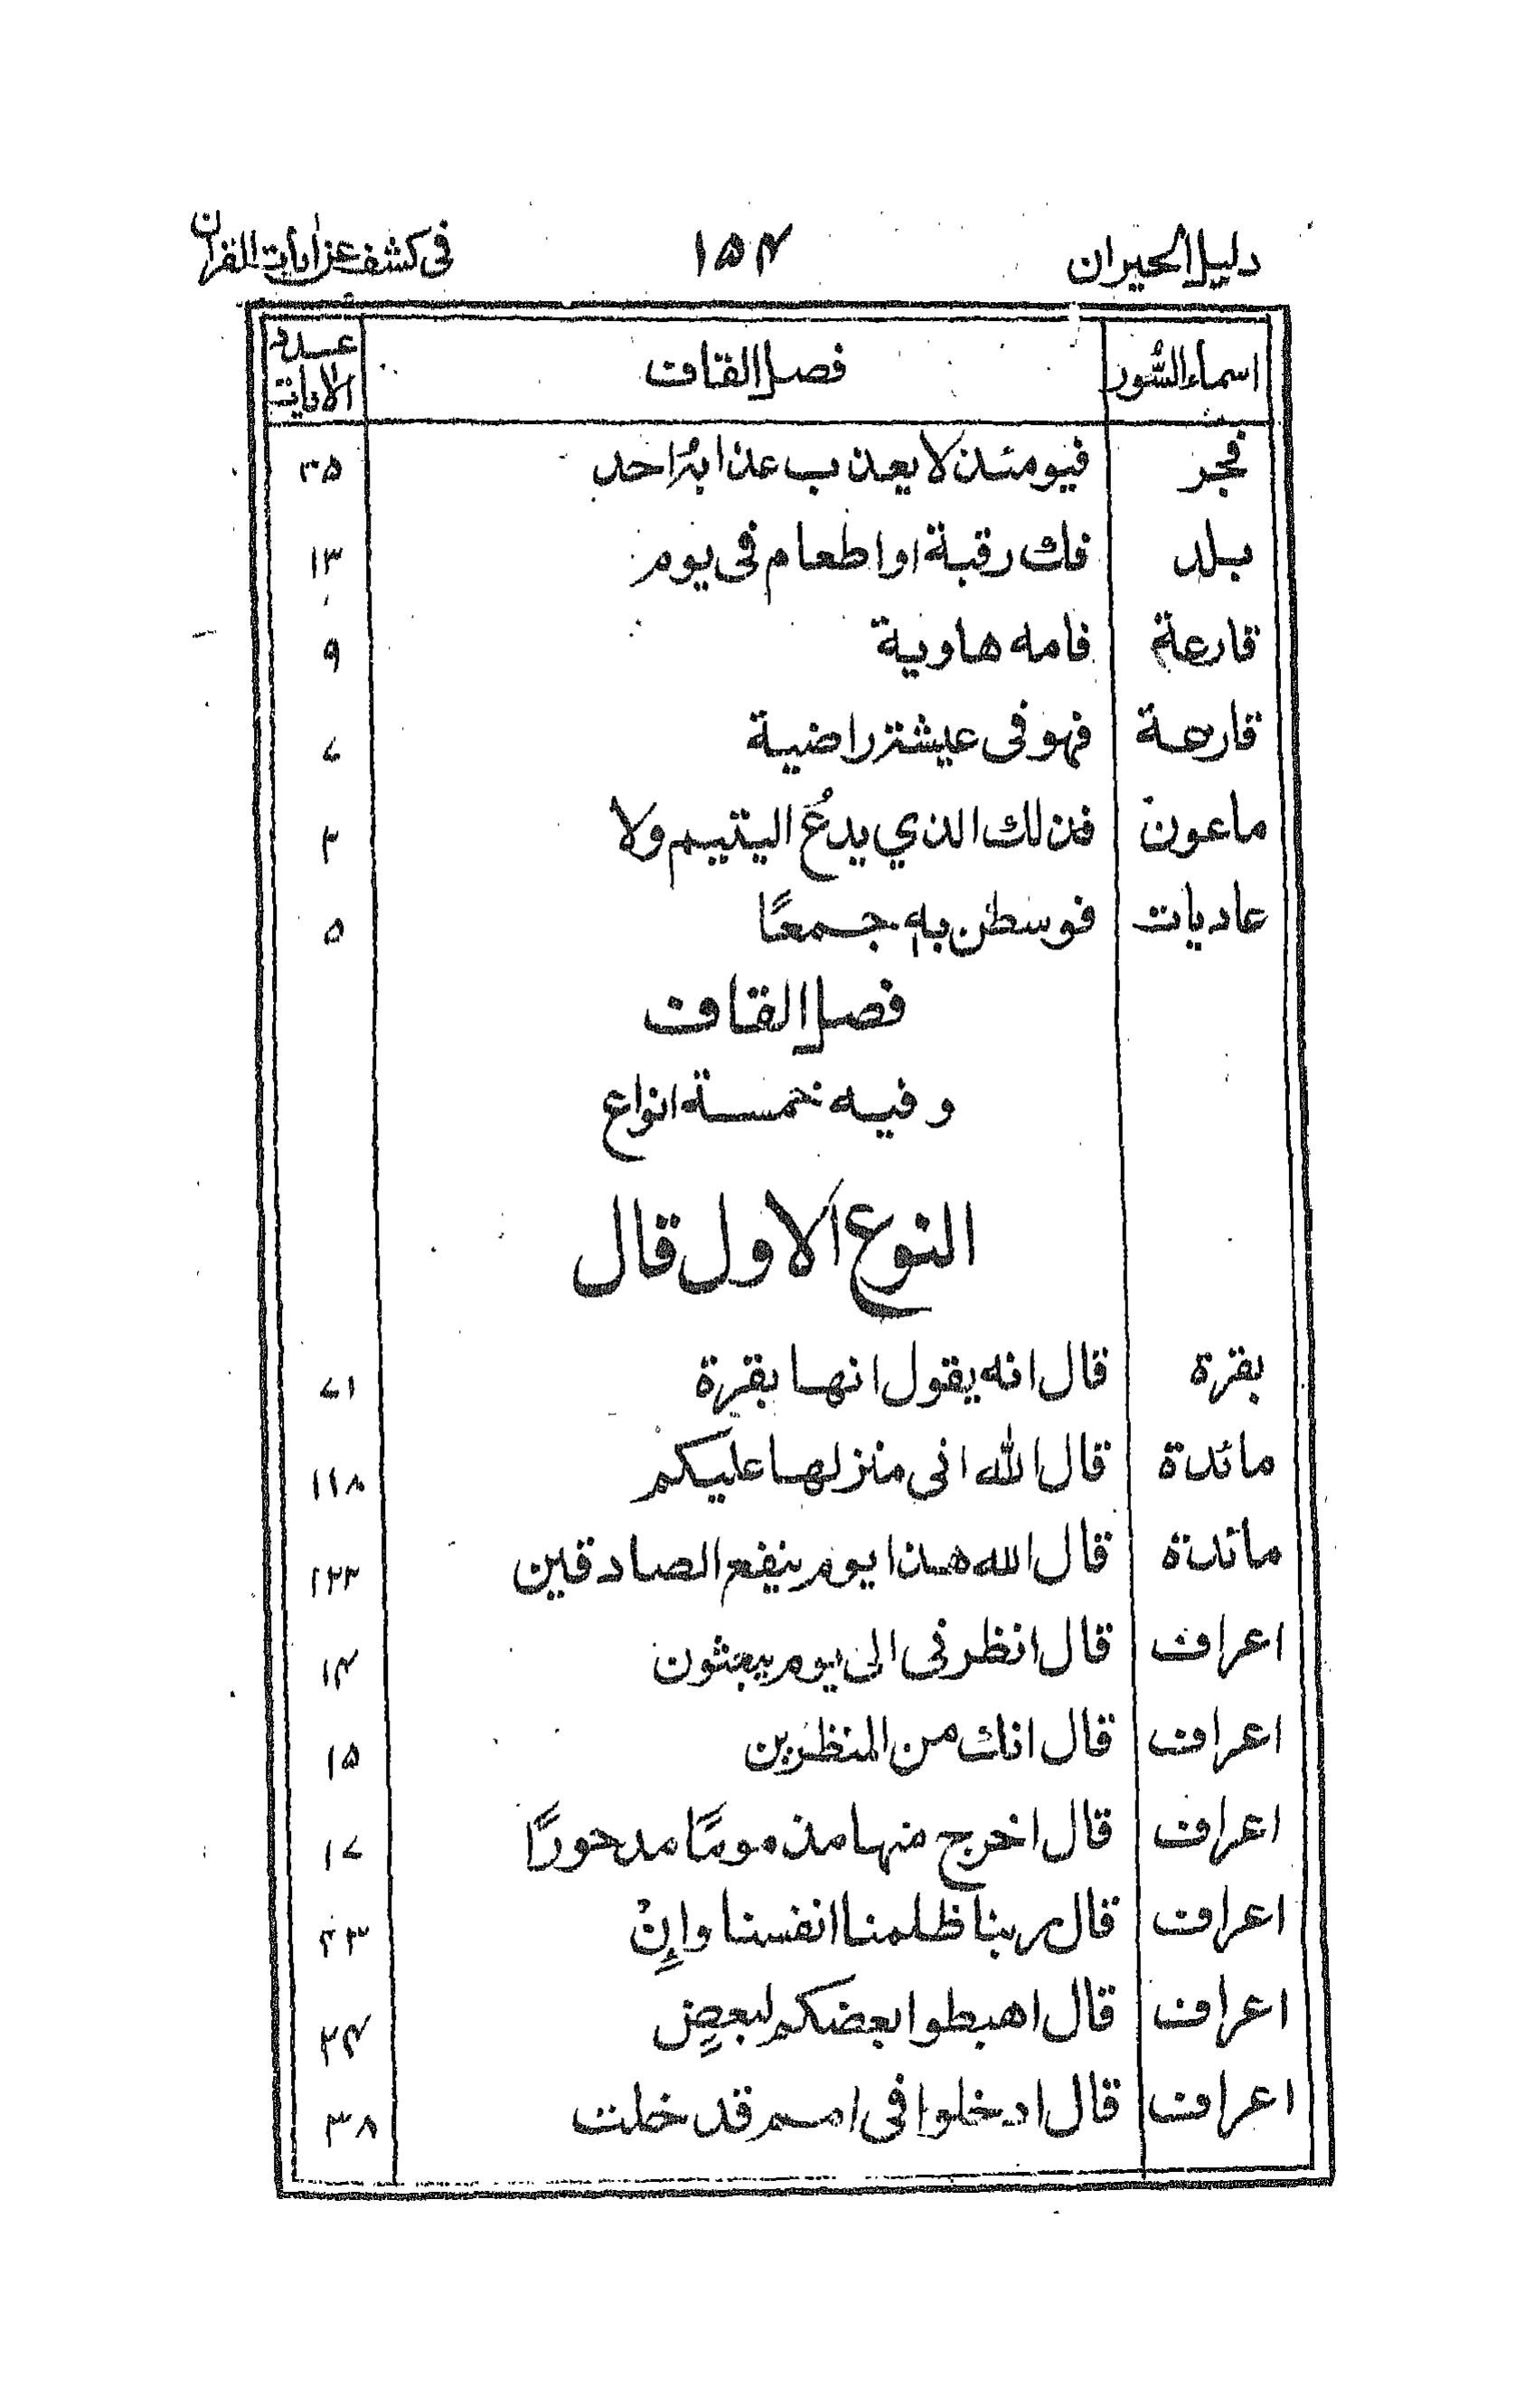 دليل الحيران ۱۵۴ فى كشف عن اٰيات القراٰن
اسماء السُّور فصل القاف عدد الاٰيات
فجر فيومئذ لا يعذب عذابهٗ احد ۲۵
بلد فك رقبة او اطعام فى يوم ۱۳
قارعة فامه هاوية ۹
قارعة فهو فى عيشة راضية ۷
ماعون فذلك الذي يدعُّ اليتيم ولا ۲
عاديات فوسطن بهٖ جمعًا ۵
فصل القاف
وفيه خمسة انواع
النوع الاول قال
بقرة قال انه يقول انها بقرة ۷۱
مائدة قال الله انى منزلها عليكم ۱۱۸
مائدة قال الله هذا يوم ينفع الصادقين ۱۲۲
اعراف قال انظرنى الى يوم يبعثون ۱۴
اعراف قال انك من المنظرين ۱۵
اعراف قال اخرج منها مذمومًا مدحورًا ۱۷
اعراف قال ربنا ظلمنا انفسنا وإنْ ۲۳
اعراف قال اهبطوا بعضكم لبعضٍ ۲۴
اعراف قال ادخلوا فى امم قد خلت ۳۸